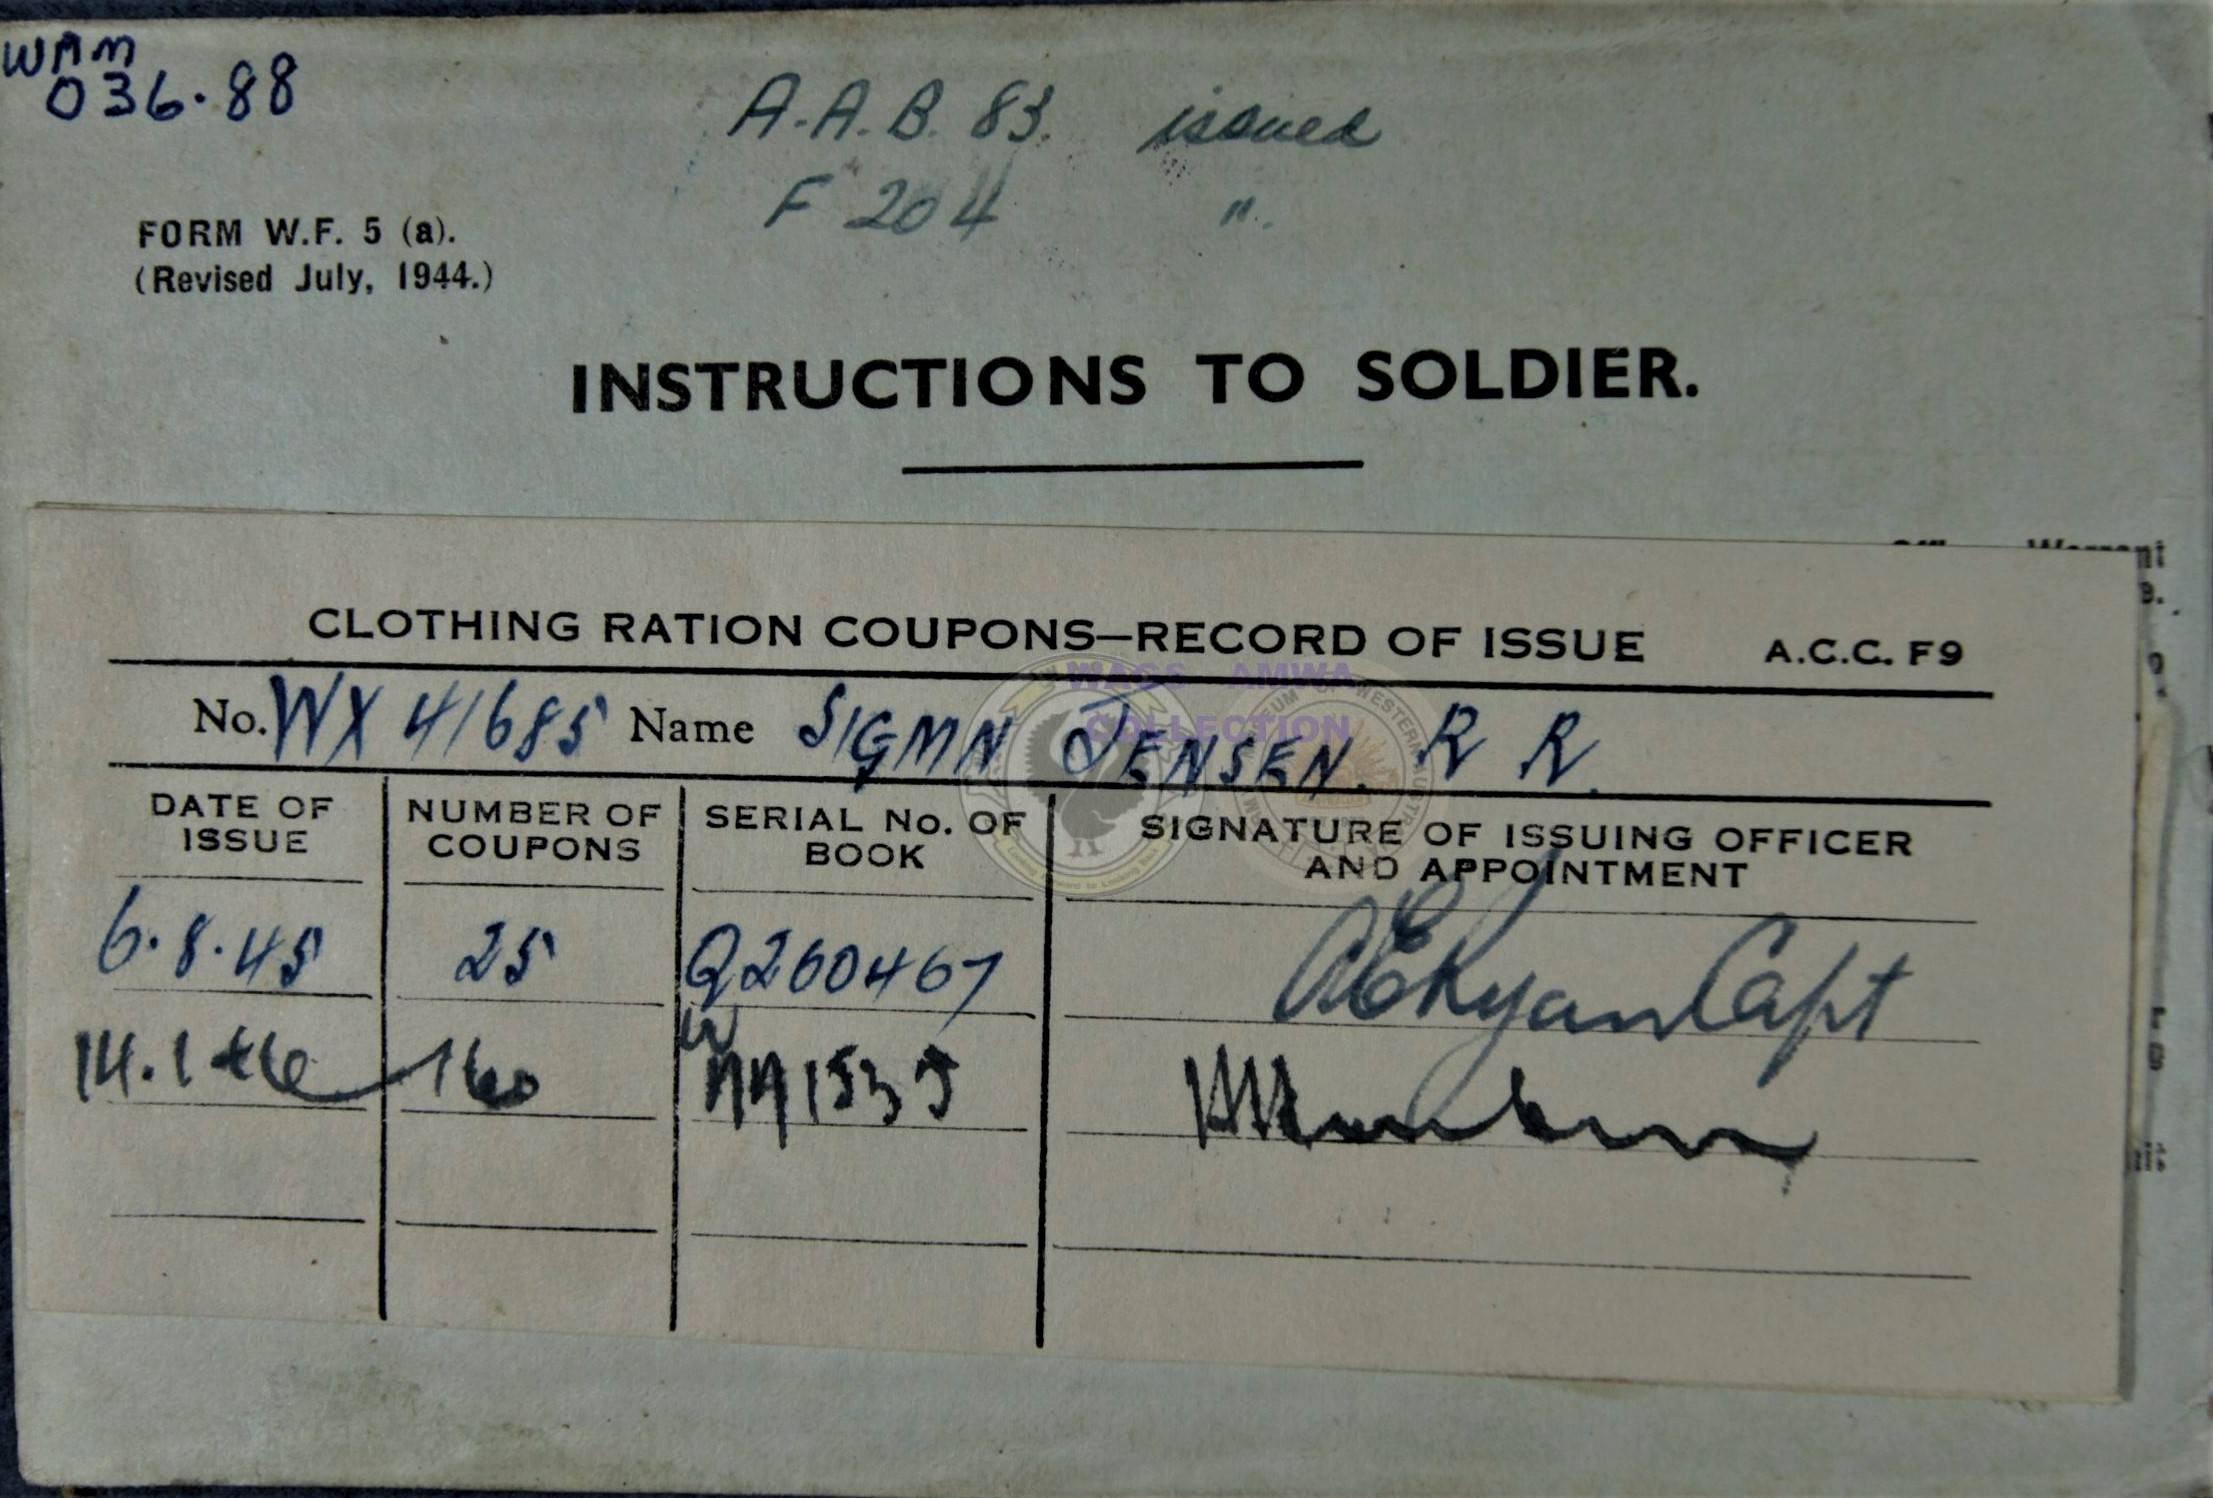 WAM
036.88
A.A.B. 83. issued
F 204 ".
FORM W.F. 5 (a).
(Revised July, 1944.)
INSTRUCTIONS TO SOLDIER.
CLOTHING RATION COUPONS—RECORD OF ISSUE A.C.C. F9
WAGS AMWA
COLLECTION
No. WX 41685 Name SIGMN JENSEN. R R.
DATE OF ISSUE NUMBER OF COUPONS SERIAL No. OF BOOK SIGNATURE OF ISSUING OFFICER AND APPOINTMENT
6.8.45 25 Q260467 Ryan Capt
14.1 46 160